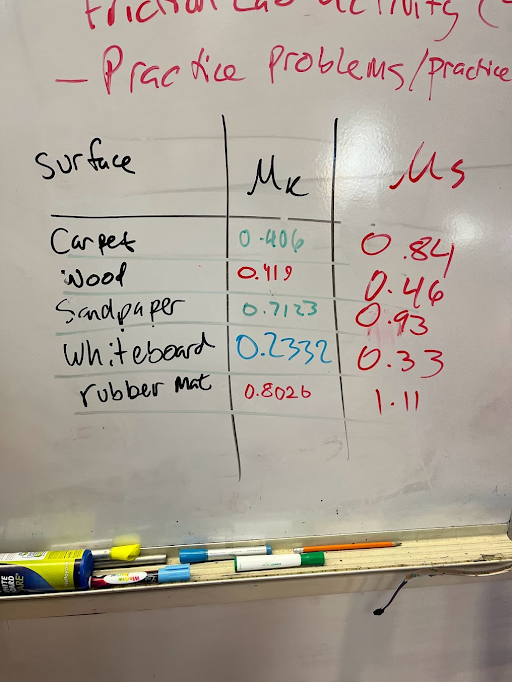 Friction Lab activity (
– Practice Problems/practice
Surface μk μs
Carpet 0.406 0.84
Wood 0.419 0.46
Sandpaper 0.7123 0.93
Whiteboard 0.2332 0.33
rubber mat 0.8026 1.11